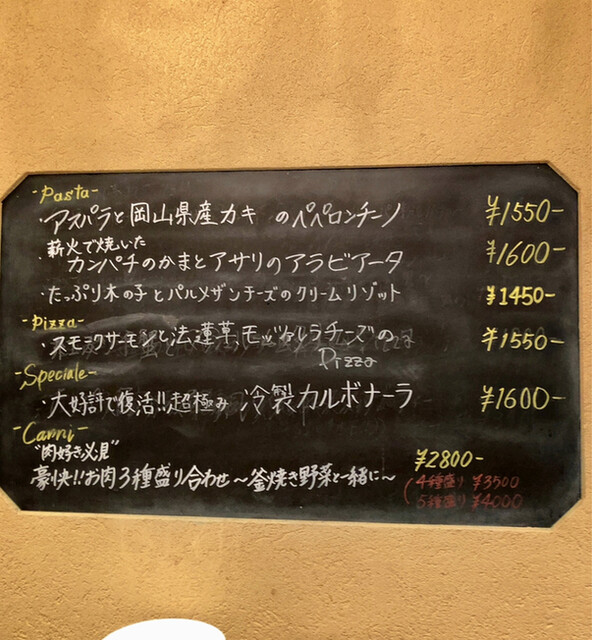 -Pasta-
・アスパラと岡山県産カキ のペペロンチーノ ¥1550-
薪火で焼いた
カンパチのかまとアサリのアラビアータ ¥1600-
・たっぷり木の子とパルメザンチーズのクリームリゾット ¥1450-
-Pizza-
・スモークサーモンと法蓮草、モッツァレラチーズの ¥1550-
Pizza
-Speciale-
・大好評で復活!!超極み 冷製カルボナーラ ¥1600-
-Carni-
"肉好き必見"
¥2800-
豪快!!お肉3種盛り合わせ〜釜焼き野菜と一緒に〜
(4種盛り ¥3500
5種盛り ¥4000